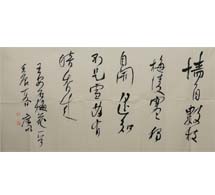 墙角數枝
梅凌寒獨
自開遥知
不是雪為有
暗香来
王安石梅花一首